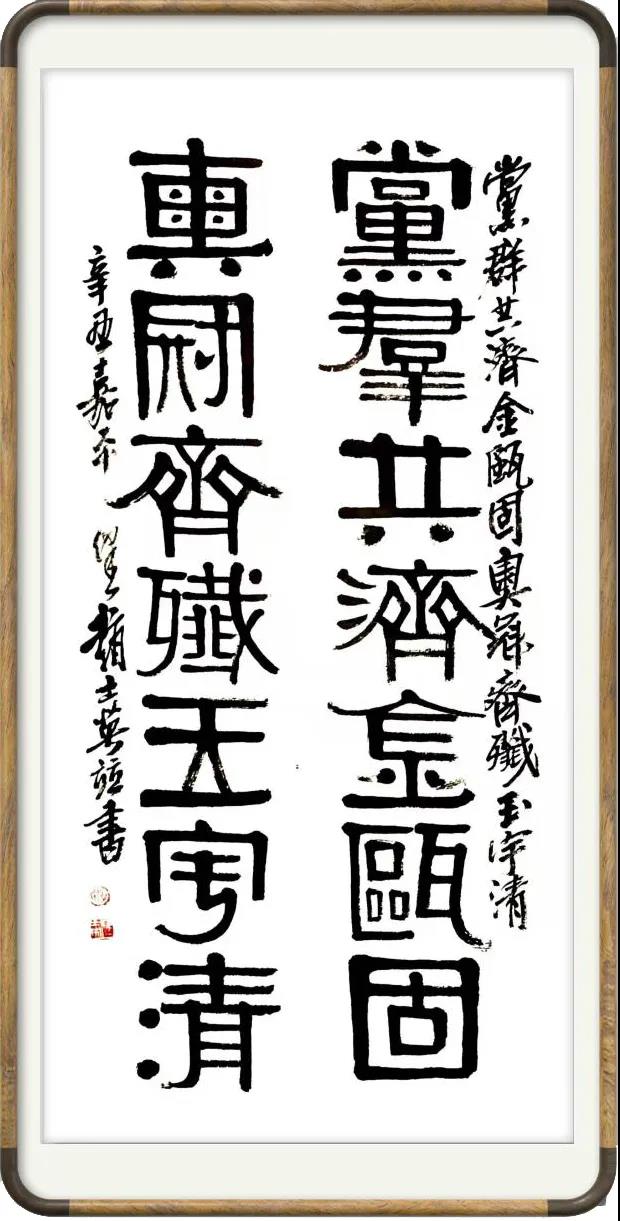 黨群共濟金甌固奧冠齊殲玉宇清
黨羣共濟金甌固
奧冠齊殲玉宇清
辛丑嘉平 士英書